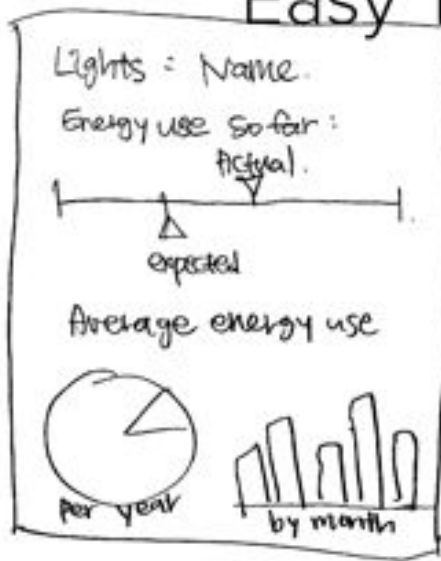 Easy
Lights : Name.
Energy use so far :
Actual.
expected
Average energy use
per year
by month